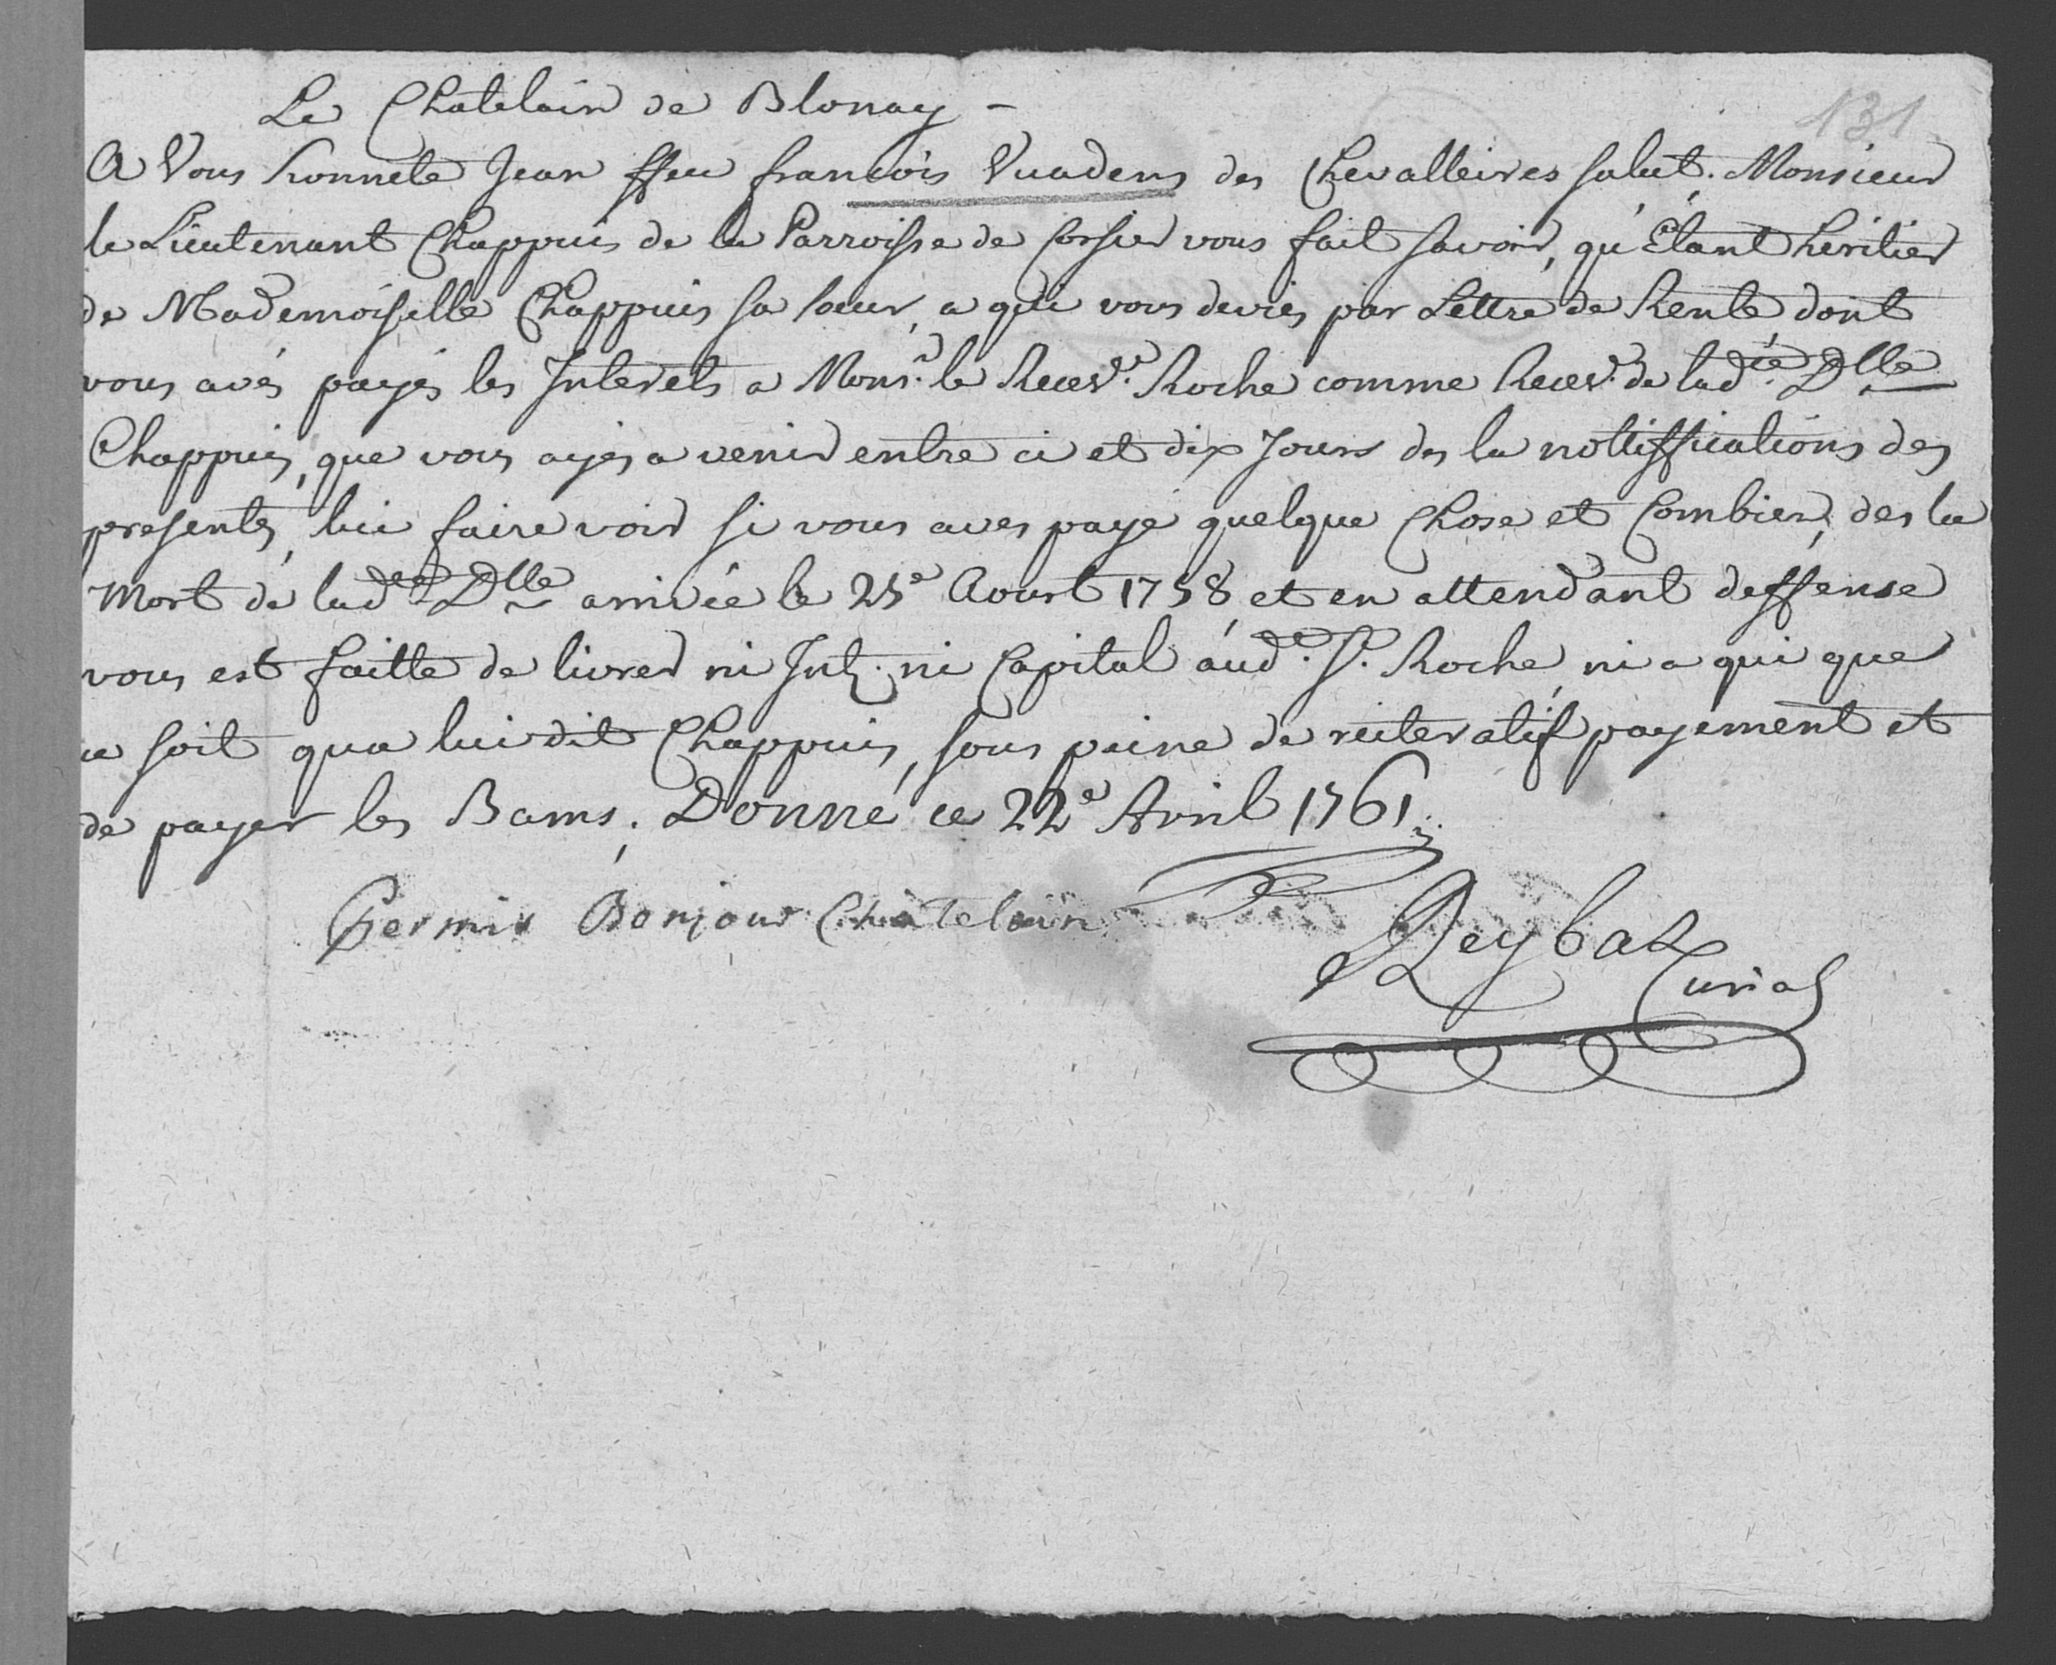 131
Le Chatelain de Blonay -
A Vous honnete Jean ffeu francois Vuadens des Chevalleires salut. Monsieur
le Lieutenant Chappuis de la Parroisse de Corsier vous fait savoir, qu'Etant heritier
de Mademoiselle Chappuis sa soeur, a qui vous deviés par Lettre de Rente dont
vous avés payés les Interets a Monsr. le Recevr. Roche comme Recevr. de ladite. Dlle
Chappuis, que vous ayes a venir entre ci et dix Jours des la nottiffications des
presentes, lui faire voir si vous aves payé quelque Chose et Combien, des la
Mort de ladte Dlle arrivée le 25e Aoust 1758, et en attendant deffense
vous est faitte de livrer ni Int. ni Capital audt. Sr. Roche ni a qui que
ce soit qua lui dit Chappuis, sous peine de reiteratif payement et
de payer les Bams. Donné ce 22e Avril 1761.
Permis Bonjour Chatelain
Reybaz
Curial